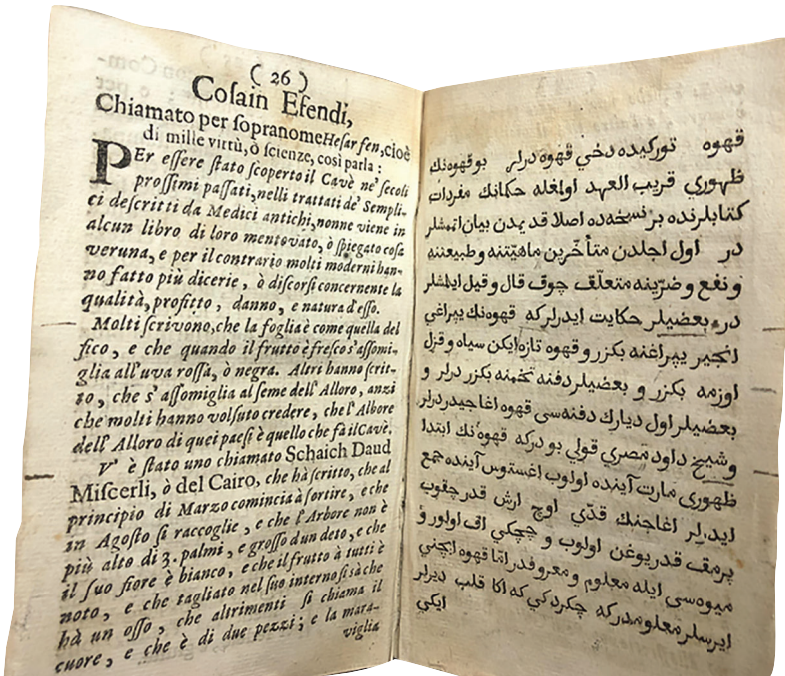 ( 26 )
Coſain Efendi,
Chiamato per ſopranome Heſar fen, cioè
di mille virtù, ò ſcienze, così parla :
PEr eſſere ſtato ſcoperto il Cavè ne' ſecoli
proſſimi paſſati, nelli trattati de' Sempli-
ci deſcritti da Medici antichi, nonne viene in
alcun libro di loro mentovato, ò ſpiegato coſa
veruna, e per il contrario molti moderni han-
no fatto più dicerie, ò diſcorſi concernente la
qualità, profitto, danno, e natura d'eſſo.
Molti ſcrivono, che la foglia è come quella del
fico, e che quando il frutto è freſco s'aſſomi-
glia all'uva roſſa, ò negra. Altri hanno ſcrit-
to, che s'aſſomiglia al ſeme dell' Alloro, anzi
che molti hanno volſuto credere, che l'Albore
dell' Alloro di quei paeſi è quello che fà il Cavè.
V' è ſtato uno chiamato Schaich Daud
Miſcerli, ò del Cairo, che hà ſcritto, che al
principio di Marzo comincia à ſortire, e che
in Agoſto ſi raccoglie, e che l'Arbore non è
più alto di 3. palmi, e groſſo d'un deto, e che
il ſuo fiore è bianco, e che il frutto à tutti è
noto, e che tagliato nel ſuo interno ſi sà che
hà un oſſo, che altrimenti ſi chiama il
cuore, e che è di due pezzi; e la mara-
viglia
قهوه توركيده دخي قهوه درلر بو قهوه نك
ظهوري قريب العهد اولمغله حكمانك مفردات
كتابلرنده بر نسخه ده اصلا قديمدن بيان اتممشلر
در اول اجلدن متأخرين ماهيتنه وطبيعتنه
و نفع و ضررينه متعلق چوق قال و قيل ايلمشلر
در بعضيلر حكايت ايدرلر كه قهوه نك يپراغي
انجير يپراغنه بكزر و قهوه تازه ايكن سياه و قزل
اوزمه بكزر و بعضيلر دفنه تخمنه بكزر درلر و
بعضيلر اول ديارك دفنه سى قهوه اغاجيدر درلر
و شيخ داود مصري قولي بو در كه قهوه نك ابتدا
ظهوري مارت آينده اولوب اغستوس آينده جمع
ايدرلر اغاجنك قدي اوچ ارش قدر چقوب
پرمق قدر يوغن اولوب و چچكي اق اولور و
ميوه سى ايله معلوم و معروفدر اما قهوه ايچني
ايرسلر معلومدر كه چكردكي كه اكا قلب ديرلر
ايكي